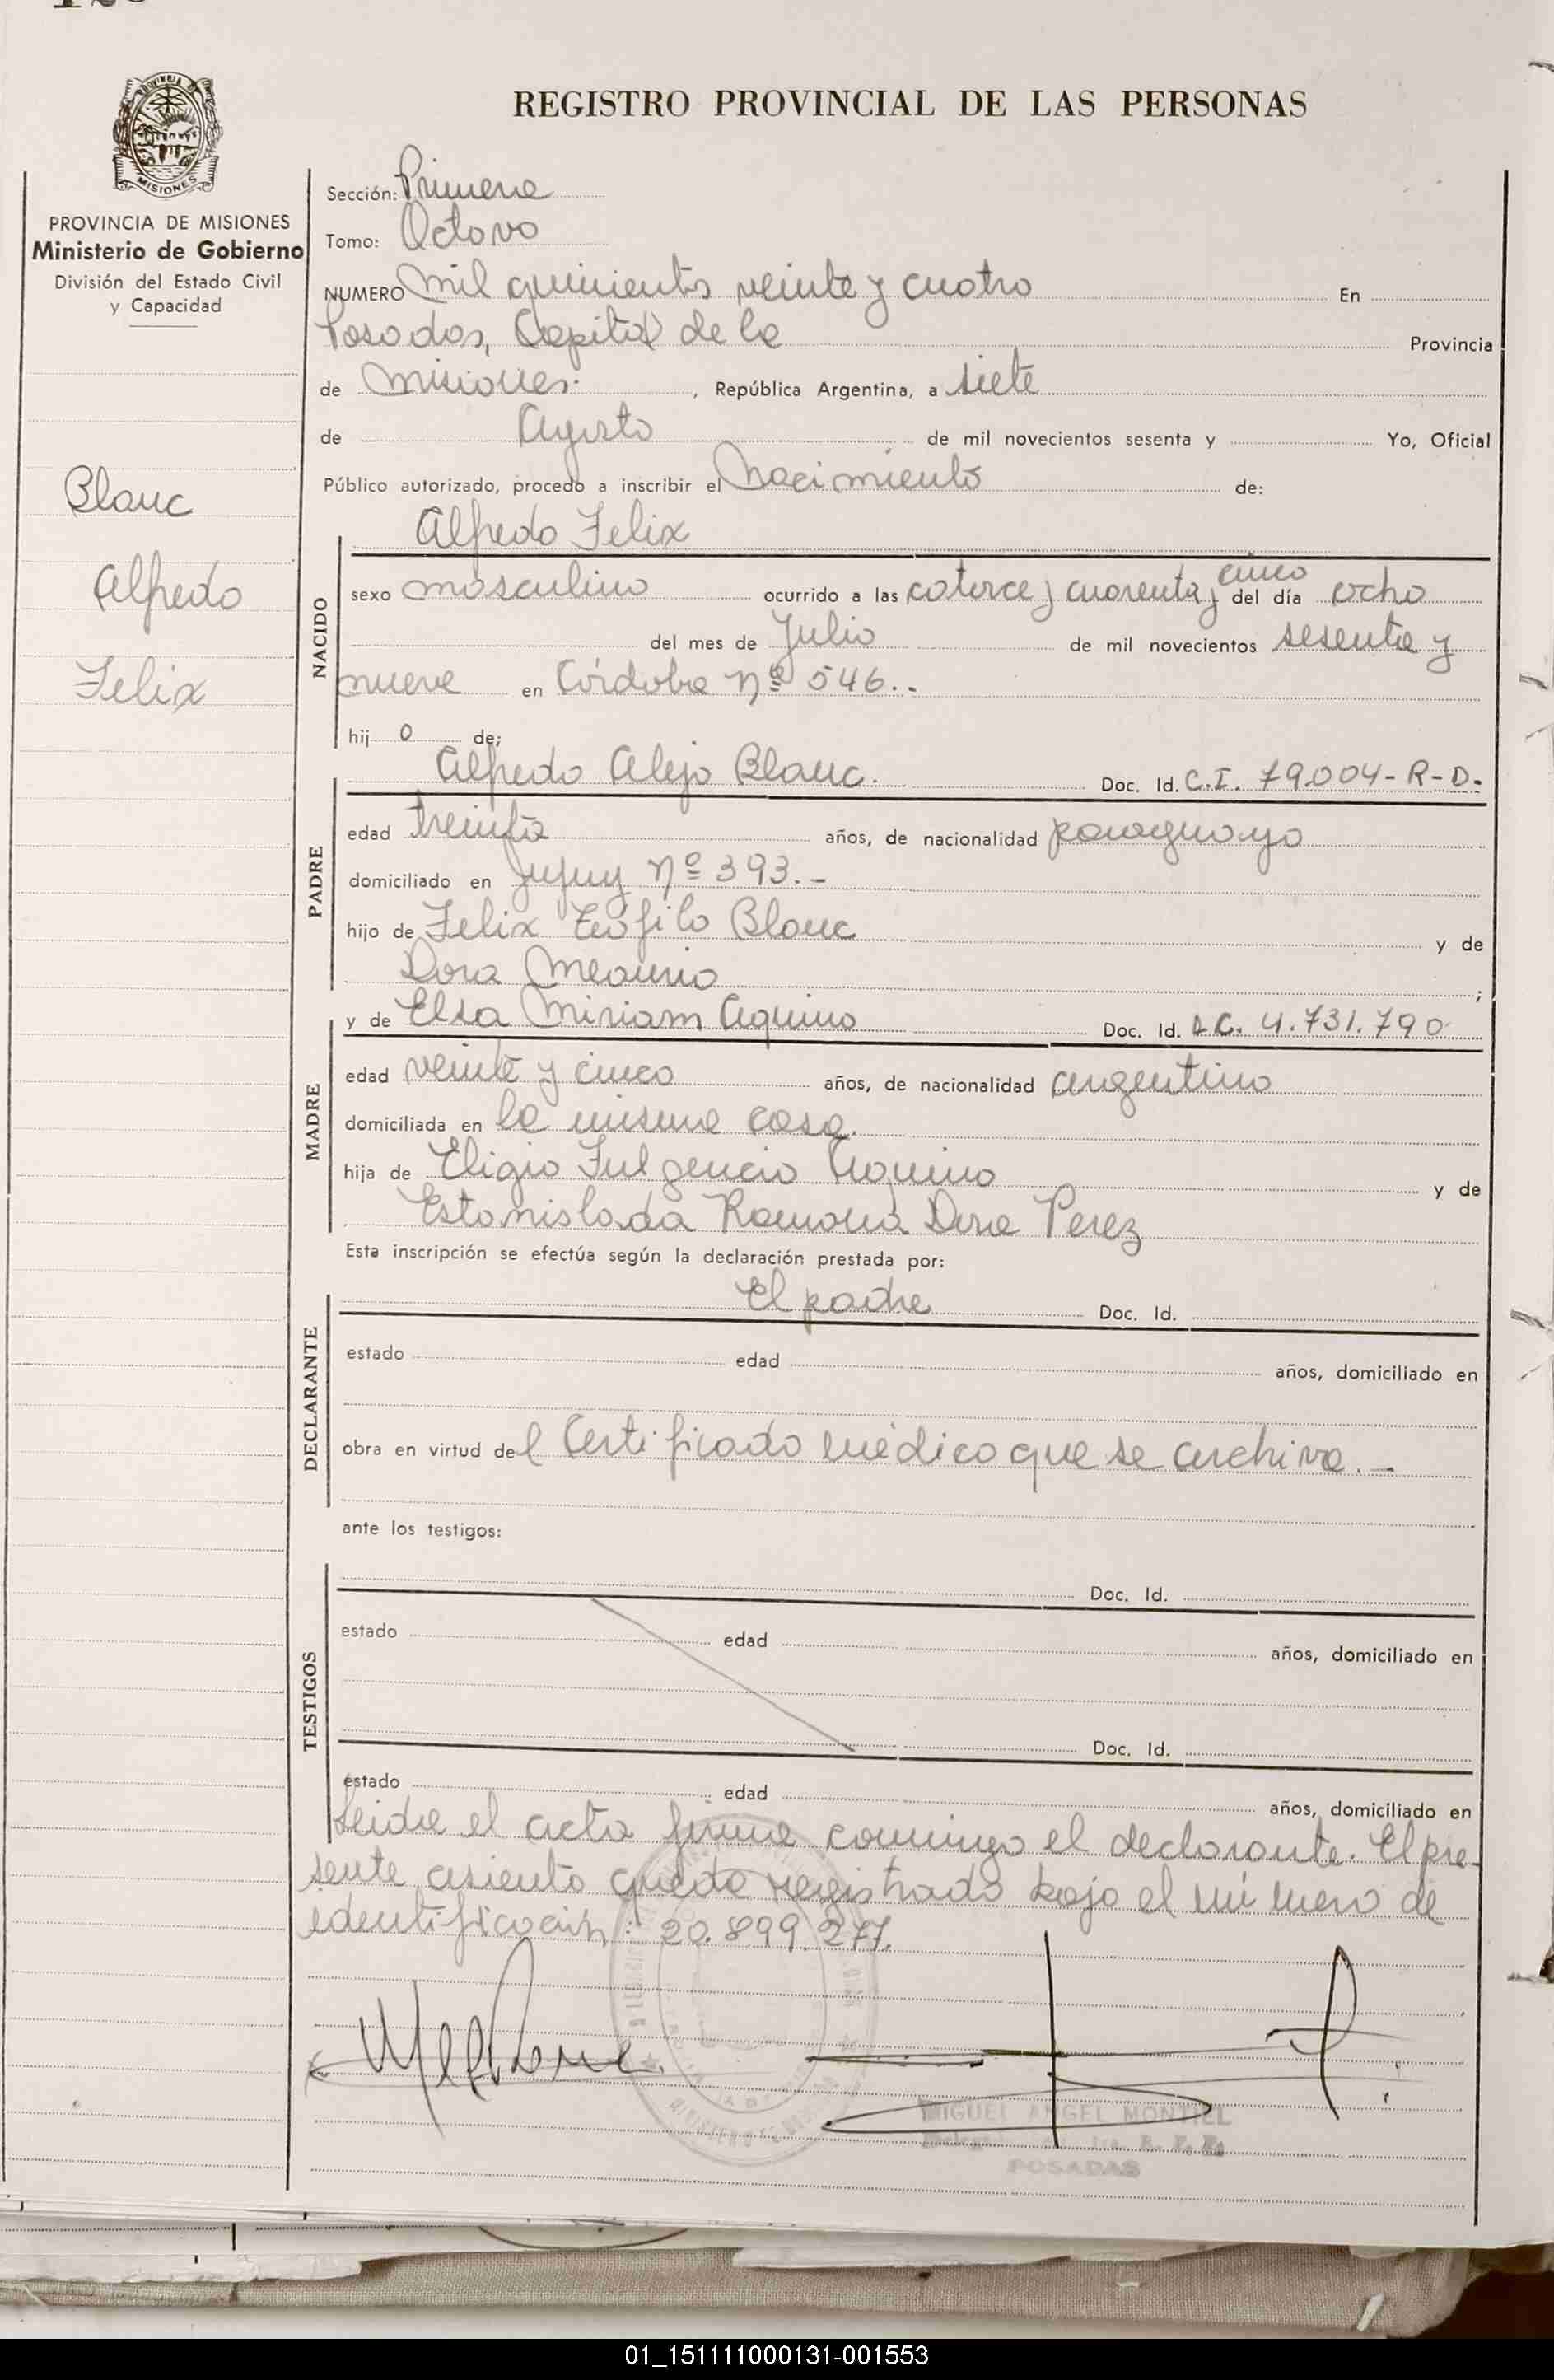 REGISTRO PROVINCIAL DE LAS PERSONAS
MISIONES
PROVINCIA DE MISIONES
Ministerio de Gobierno
División del Estado Civil
y Capacidad
Blanc
Alfredo
Felix
Sección: Primera
Tomo: Octavo
NUMERO Mil quinientos veinte y cuatro En
Posadas, Capital de la Provincia
de Misiones. , República Argentina, a siete
de Agosto de mil novecientos sesenta y Yo, Oficial
Público autorizado, procedo a inscribir el Nacimiento de:
NACIDO
Alfredo Felix
sexo masculino ocurrido a las catorce y cuarenta y cinco del día ocho
del mes de Julio de mil novecientos sesenta y
nueve en Córdoba Nº 546..
hij o de;
PADRE
Alfredo Alejo Blanc. Doc. Id. C.I. 79.004-R-D.
edad treinta años, de nacionalidad paraguayo
domiciliado en Jujuy Nº 393.-
hijo de Felix Teófilo Blanc y de
Dora ;
MADRE
y de Elsa Miriam Aquino Doc. Id. L.C. 4.731.790
edad veinte y cinco años, de nacionalidad argentino
domiciliada en la misma casa.
hija de Eligio Fulgencio Aquino y de
Estanislada Ramona Perez
Esta inscripción se efectúa según la declaración prestada por:
DECLARANTE
El padre Doc. Id.
estado edad años, domiciliado en
obra en virtud del Certificado médico que se archiva.-
ante los testigos:
TESTIGOS
Doc. Id.
estado edad años, domiciliado en
Doc. Id.
estado edad años, domiciliado en
Leida el acta firma conmigo el declarante. El pre-
sente asiento queda registrado bajo el número de
identificación: 20.899.277.
MIGUEL ANGEL MONTIEL
POSADAS
01_151111000131-001553